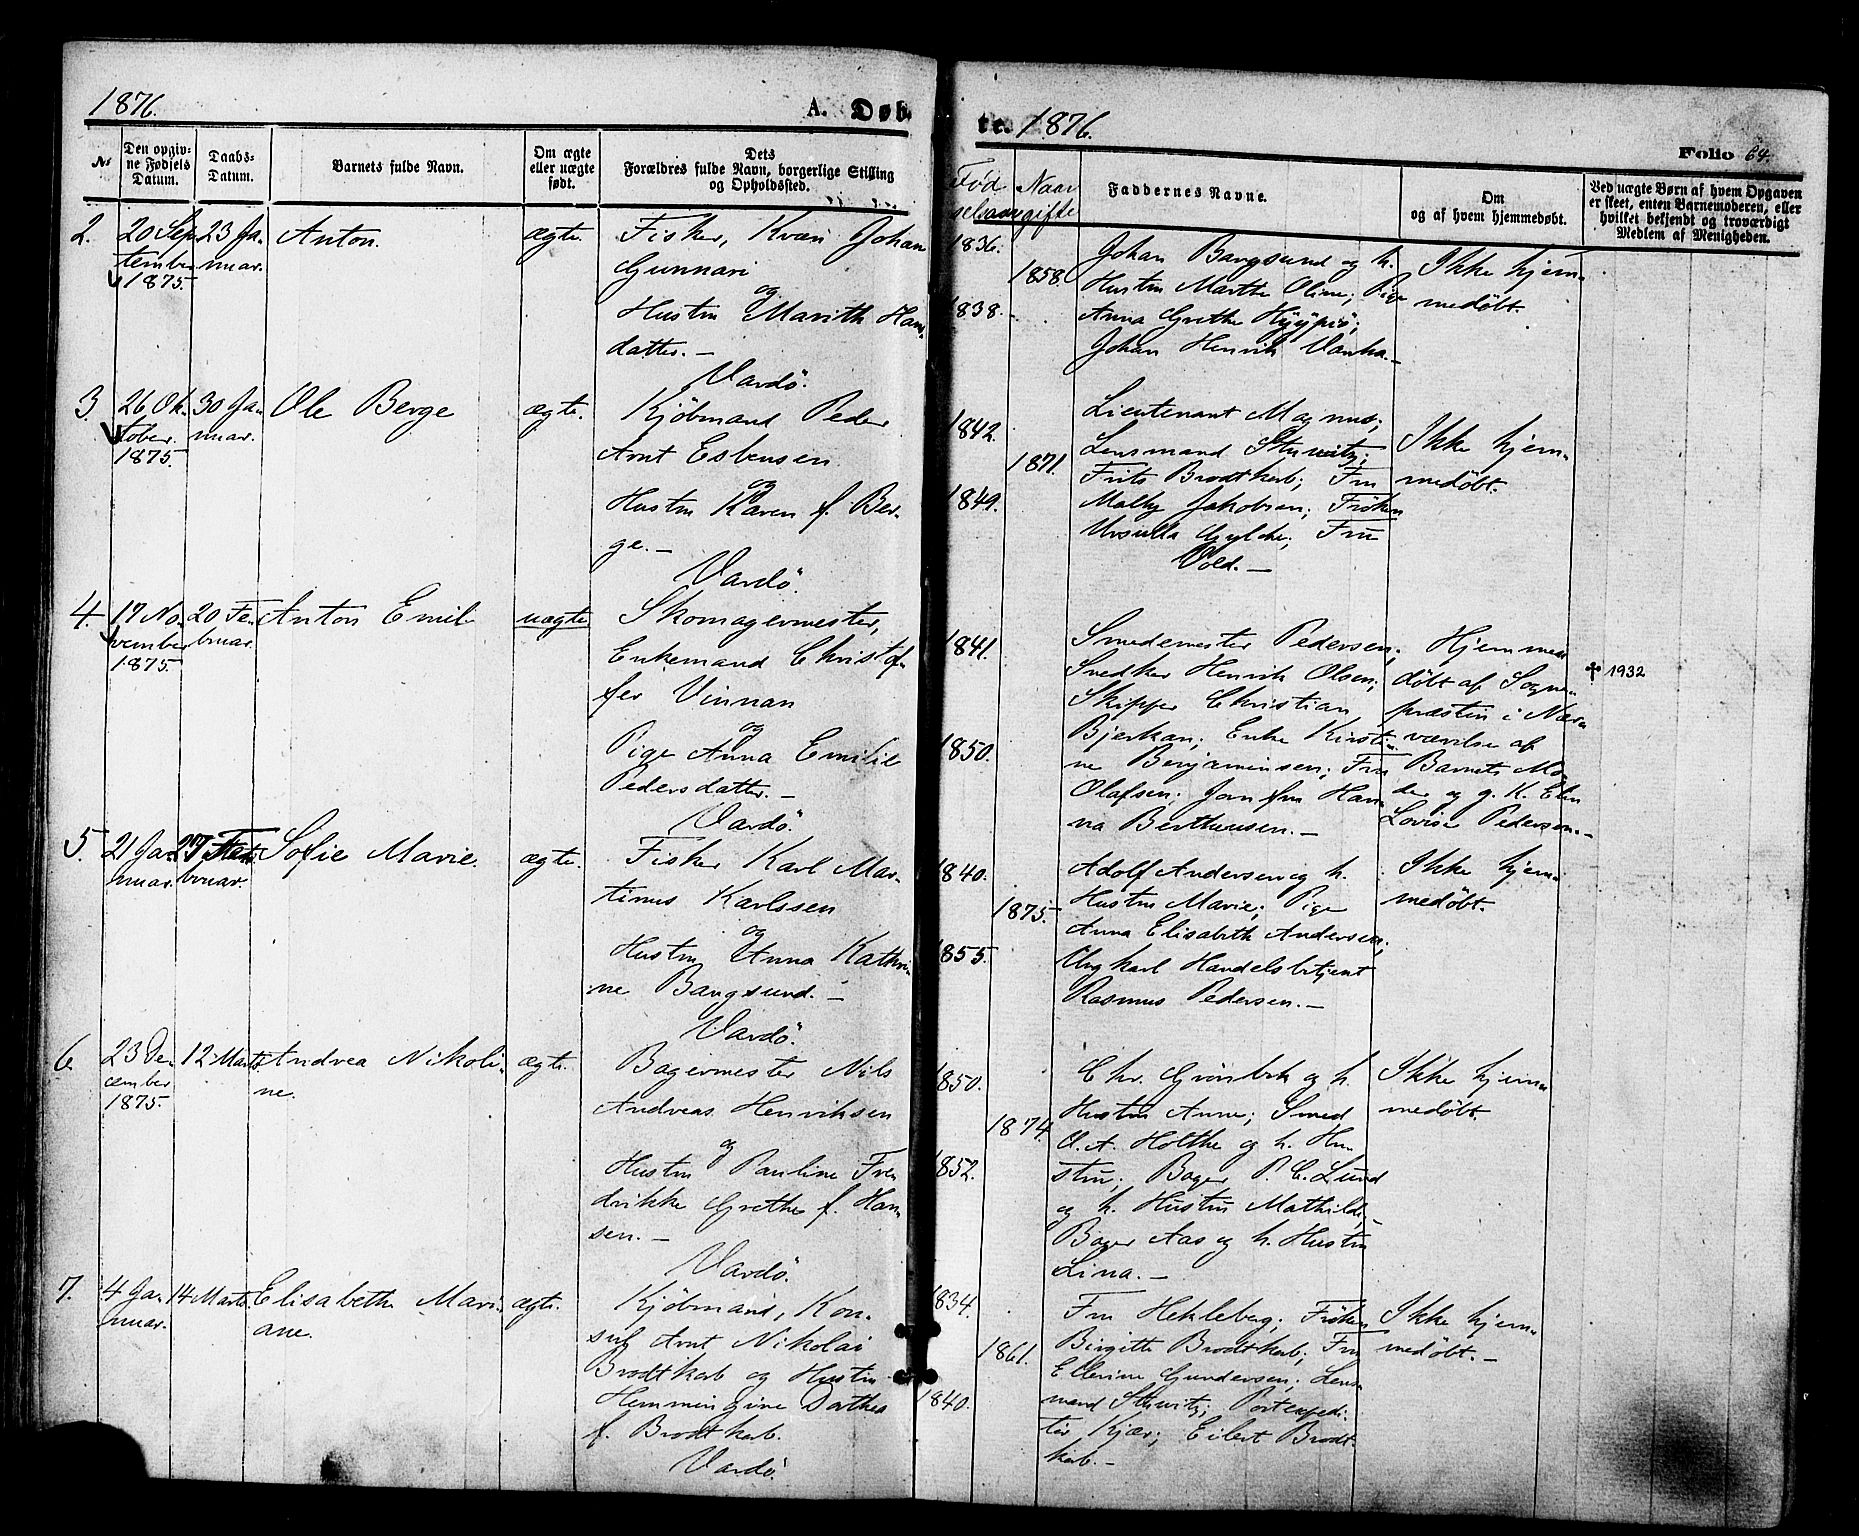 1876.
A. Døb
te. 1876.
Folio 64.
№
Den opgiv-
ne Fødsels
Datum.
Daabs-
Datum.
Barnets fulde Navn.
Om ægte
eller uægte
født.
Dets
Forældres fulde Navn, borgerlige Stilling
og Opholdssted.
Fød
selsaar
Naar
gifte
Faddernes Navne.
Om
og af hvem hjemmedøbt.
Ved uægte Børn af hvem Opgaven
er skeet, enten Barnemoderen, eller
hvilket bekjendt og troværdigt
Medlem af Menigheden.
2.
20 Sep
tember
1875.
23 Ja-
nuar.
Anton.
ægte.
Fisker, Kvæn Johan
Gunnari
og
Hustru Marith Hans
datter. —
Vardö.
1836.
1858.
1838.
Johan Bangsund og h.
Hustru Marthe Oline; Pige
Anna Grethe Hyÿpiö;
Johan Henrik Vanha. —
Ikke hjem-
medøbt.
3.
26 Ok-
tober.
1875.
30 Ja-
nuar.
Ole Berge
ægte.
Kjöbmand Peder
Arnt Esbensen
og
Hustru Karen f. Ber-
ge. —
Vardö.
1842.
1871.
1849.
Lieutenant Magnus;
Lensmand Stuwitz;
Frits Brodtkorb; Fru
Malhy Jakobsen; Frøken
Ursulla Gylche; Fru
Vold. —
Ikke hjem-
medøbt.
4.
17 No-
vember
1875.
20 Fe-
bruar.
Anton Emil
uægte
Skomagermester,
Enkemand Christof-
fer Vinnan
og
Pige Anna Emilie
Pedersdatter. —
Vardö.
1841.
1850.
Smedemester Pedersen;
Snedker Henrik Olsen;
Skipper Christian
Bjerkan; Enke Kirsti-
ne Benjaminsen; Fru
Olafsen; Jomfru Han-
na Bertheusen. —
Hjemme-
døbt af Sogne-
præsten i Nær-
værelse af
Barnets Mo-
der og g. K. Elen
Lovise Pedersen. —
✝ 1932
5.
21 Ja-
nuar.
27 Fe-
bruar.
Sofie Marie.
ægte.
Fisker Karl Mar-
tinus Karlssen
og
Hustru Anna Kathri-
ne Bangsund. —
Vardö.
1840.
1875.
1855.
Adolf Andersen og h.
Hustru Marie; Pige
Anna Elisabeth Andersen;
Ungkarl Handelsbetjent
Rasmus Pedersen. —
Ikke hjem-
medøbt.
6.
23 De-
cember
1875.
12 Marts
Andrea Nikoli-
ne.
ægte.
Bagermester Nils
Andreas Henriksen
og
Hustru Pauline Fre-
drikke Grethe f. Han-
sen. —
Vardö.
1850.
1874.
1852.
Chr. Grönbek og h.
Hustru Anne; Smed
O. A. Holthe og h. Hu-
stru; Bager P. C. Lund
og h. Hustru Mathilde;
Bager Aas og h. Hustru
Lina. —
Ikke hjem-
medøbt.
7.
4 Ja-
nuar.
14 Marts.
Elisabeth Mari-
ane.
ægte.
Kjöbmand, Kon-
sul Arnt Nikolai
Brodtkorb og Hustru
Hemmingine Dorthea
f. Brodtkorb.
Vardö.
1834.
1861.
1840.
Fru Hekleberg; Frøken
Birgitte Brodtkorb; Fru
Ellerine Gundersen; Lens-
mand Stuwitz; Postexpedi-
tør Kjær; Eilert Brodt-
korb. —
Ikke hjem-
medøbt. —